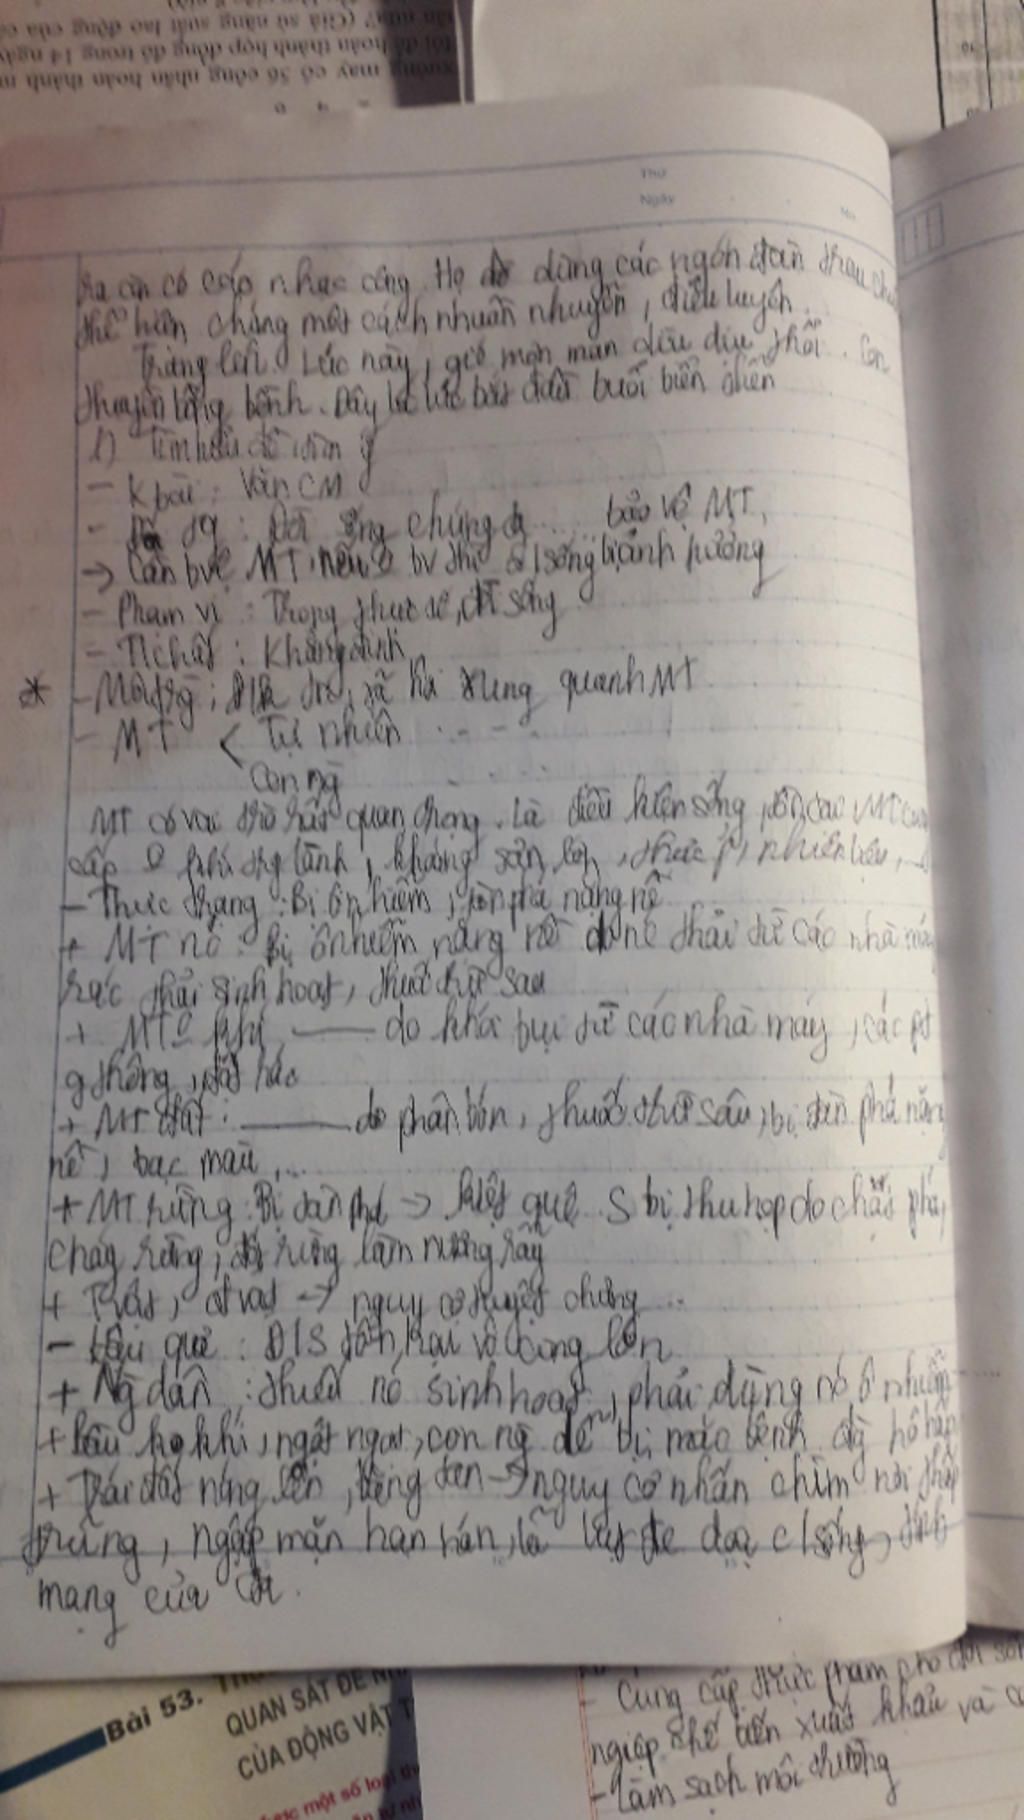 tôi để hoàn thành hợp đồng đó trong 14 ngày
xưởng may có 56 công nhân hoàn thành
Thứ
Ngày
No.
có nhạc công. Họ dùng các ngón đàn
thể hiện chúng một cách nhuần nhuyễn, điêu luyện.
Trăng lên. Lúc này, gió mơn man dìu dịu thổi. Con
thuyền bồng bềnh. Đây là lúc bắt đầu buổi biển diễn
1) Tìm hiểu đề, tìm ý
- K bài: Văn CM
- : Đời sống chúng ta .... bảo vệ MT,
→ Cần bvệ MT, nếu o bv thì c/sống bị ảnh hưởng
- Phạm vi: Trong thực tế, đời sống
- T/chất: Khẳng định
* - xung quanh MT
- MT < Tự nhiên ....
Con ng ....
MT có vai trò rất quan trọng. Là điều kiện sống, MT cung
cấp o khí trg lành, khoáng sản, nhiên liệu, ...
- Thực trạng: Bị ôn hiễm, tàn phá nặng nề
+ MT nc: Bị ô nhiễm nặng nề do nc thải từ các nhà máy
rác thải sinh hoạt, thuốc trừ sâu
+ MT o khí ___ do khói bụi từ các nhà máy, các pt
g thông,
+ MT đất: ___ do phân bón, thuốc trừ sâu, bị tàn phá nặng
nề, bạc màu,...
+ MT rừng: Bị tàn phá → kiệt quệ. S bị thu hẹp do chặt phá,
cháy rừng, đốt rừng làm nương rẫy
+ → nguy cơ tuyệt chủng ...
- Hậu quả: Đ/S tổn hại vô cùng lớn
+ Ng dân: thiếu nc sinh hoạt, phải dùng nc ô nhiễm
+ Bầu ko khí, ngột ngạt, con ng dễ bị mắc bệnh đg hô hấp
+ Trái đất nóng lên, băng tan → nguy cơ nhấn chìm nơi thấp
trũng, ngập mặn hạn hán, lũ lụt đe doạ c/sống, tính
mạng của
Bài 53.
QUAN SÁT
CỦA ĐỘNG VẬT
một số loại
- Cung cấp thực phẩm cho đời sống
ngiệp chế biến xuất khẩu và
- Làm sạch môi trường